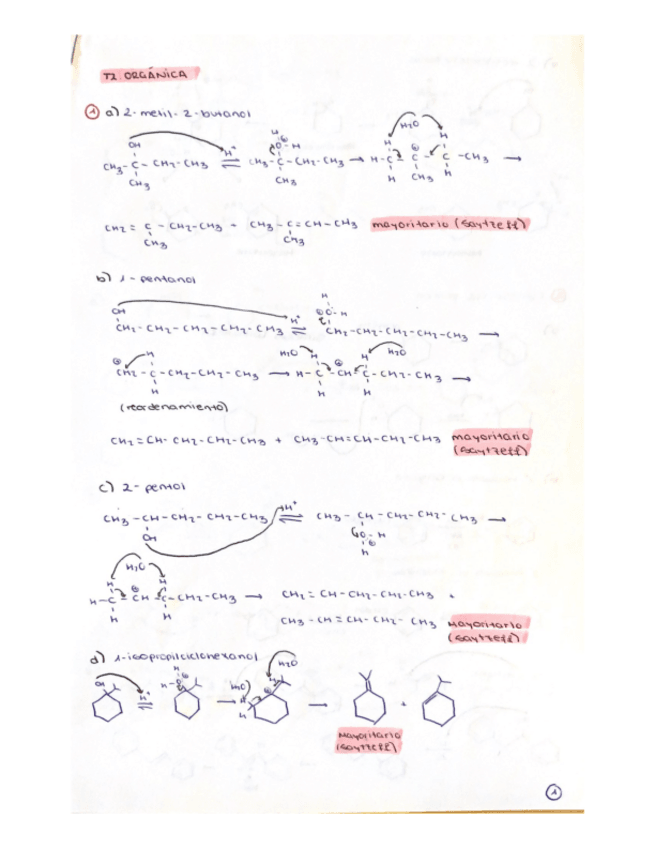 T2 ORGÁNICA
① a) 2-metil-2-butanol
OH
H⁺ ⇌
H
O⊕-H
H2O
H H
CH3-C-CH2-CH3 CH3-C-CH2-CH3 → H-C C⊕ C-CH3 →
CH3 CH3 H CH3 H
CH2=C-CH2-CH3 + CH3-C=CH-CH3 mayoritario (Saytzeff)
CH3 CH3
b) 1-pentanol
OH
H⁺
H
⊕O-H
CH2-CH2-CH2-CH2-CH3 ⇌ CH2-CH2-CH2-CH2-CH3 →
H2O H ⊕ H H2O
⊕ H
CH2-C-CH2-CH2-CH3 → H-C-CH-C-CH2-CH3 →
H H H
(reordenamiento)
CH2=CH-CH2-CH2-CH3 + CH3-CH=CH-CH2-CH3 mayoritario
(Saytzeff)
c) 2-pentol
H⁺
CH3-CH-CH2-CH2-CH3 ⇌ CH3-CH-CH2-CH2-CH3 →
OH O⊕-H
H
H2O
H ⊕ H
H-C-CH-C-CH2-CH3 → CH2=CH-CH2-CH2-CH3 +
H H
CH3-CH=CH-CH2-CH3 Mayoritario
(Saytzeff)
d) 1-isopropilciclohexanol
H2O
OH H⁺ ⇌ H-O⊕ H → H2O H H ⊕ H → +
Mayoritario
(Saytzeff)
①